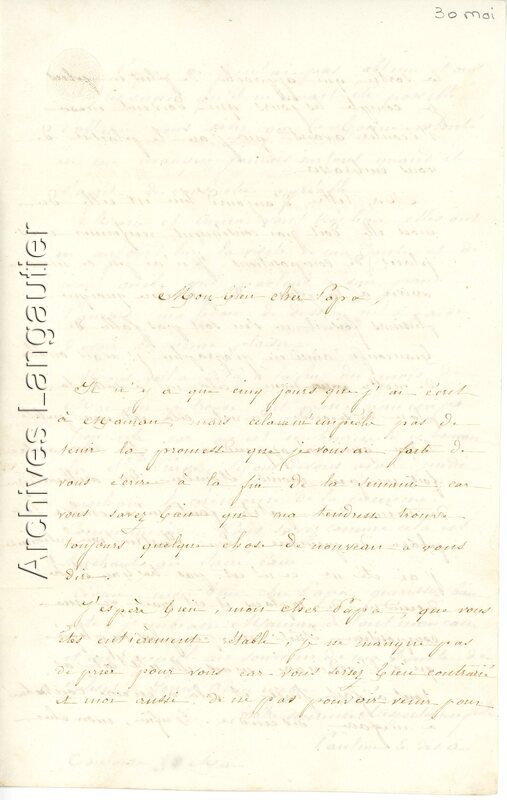 30 mai
Archives Langautier
Mon bien cher Papa,
Il n'y a que cinq jours que j'ai écrit
à Maman, mais cela ne m'empêche pas de
tenir la promesse que je vous ai faite de
vous écrire à la fin de la semaine car
vous savez bien que ma tendresse trouve
toujours quelque chose de nouveau à vous
dire.
J'espère bien, mon cher Papa, que vous
êtes entièrement rétabli, je ne manque pas
de prier pour vous car vous seriez bien contrarié
et moi aussi de ne pas pouvoir venir pour